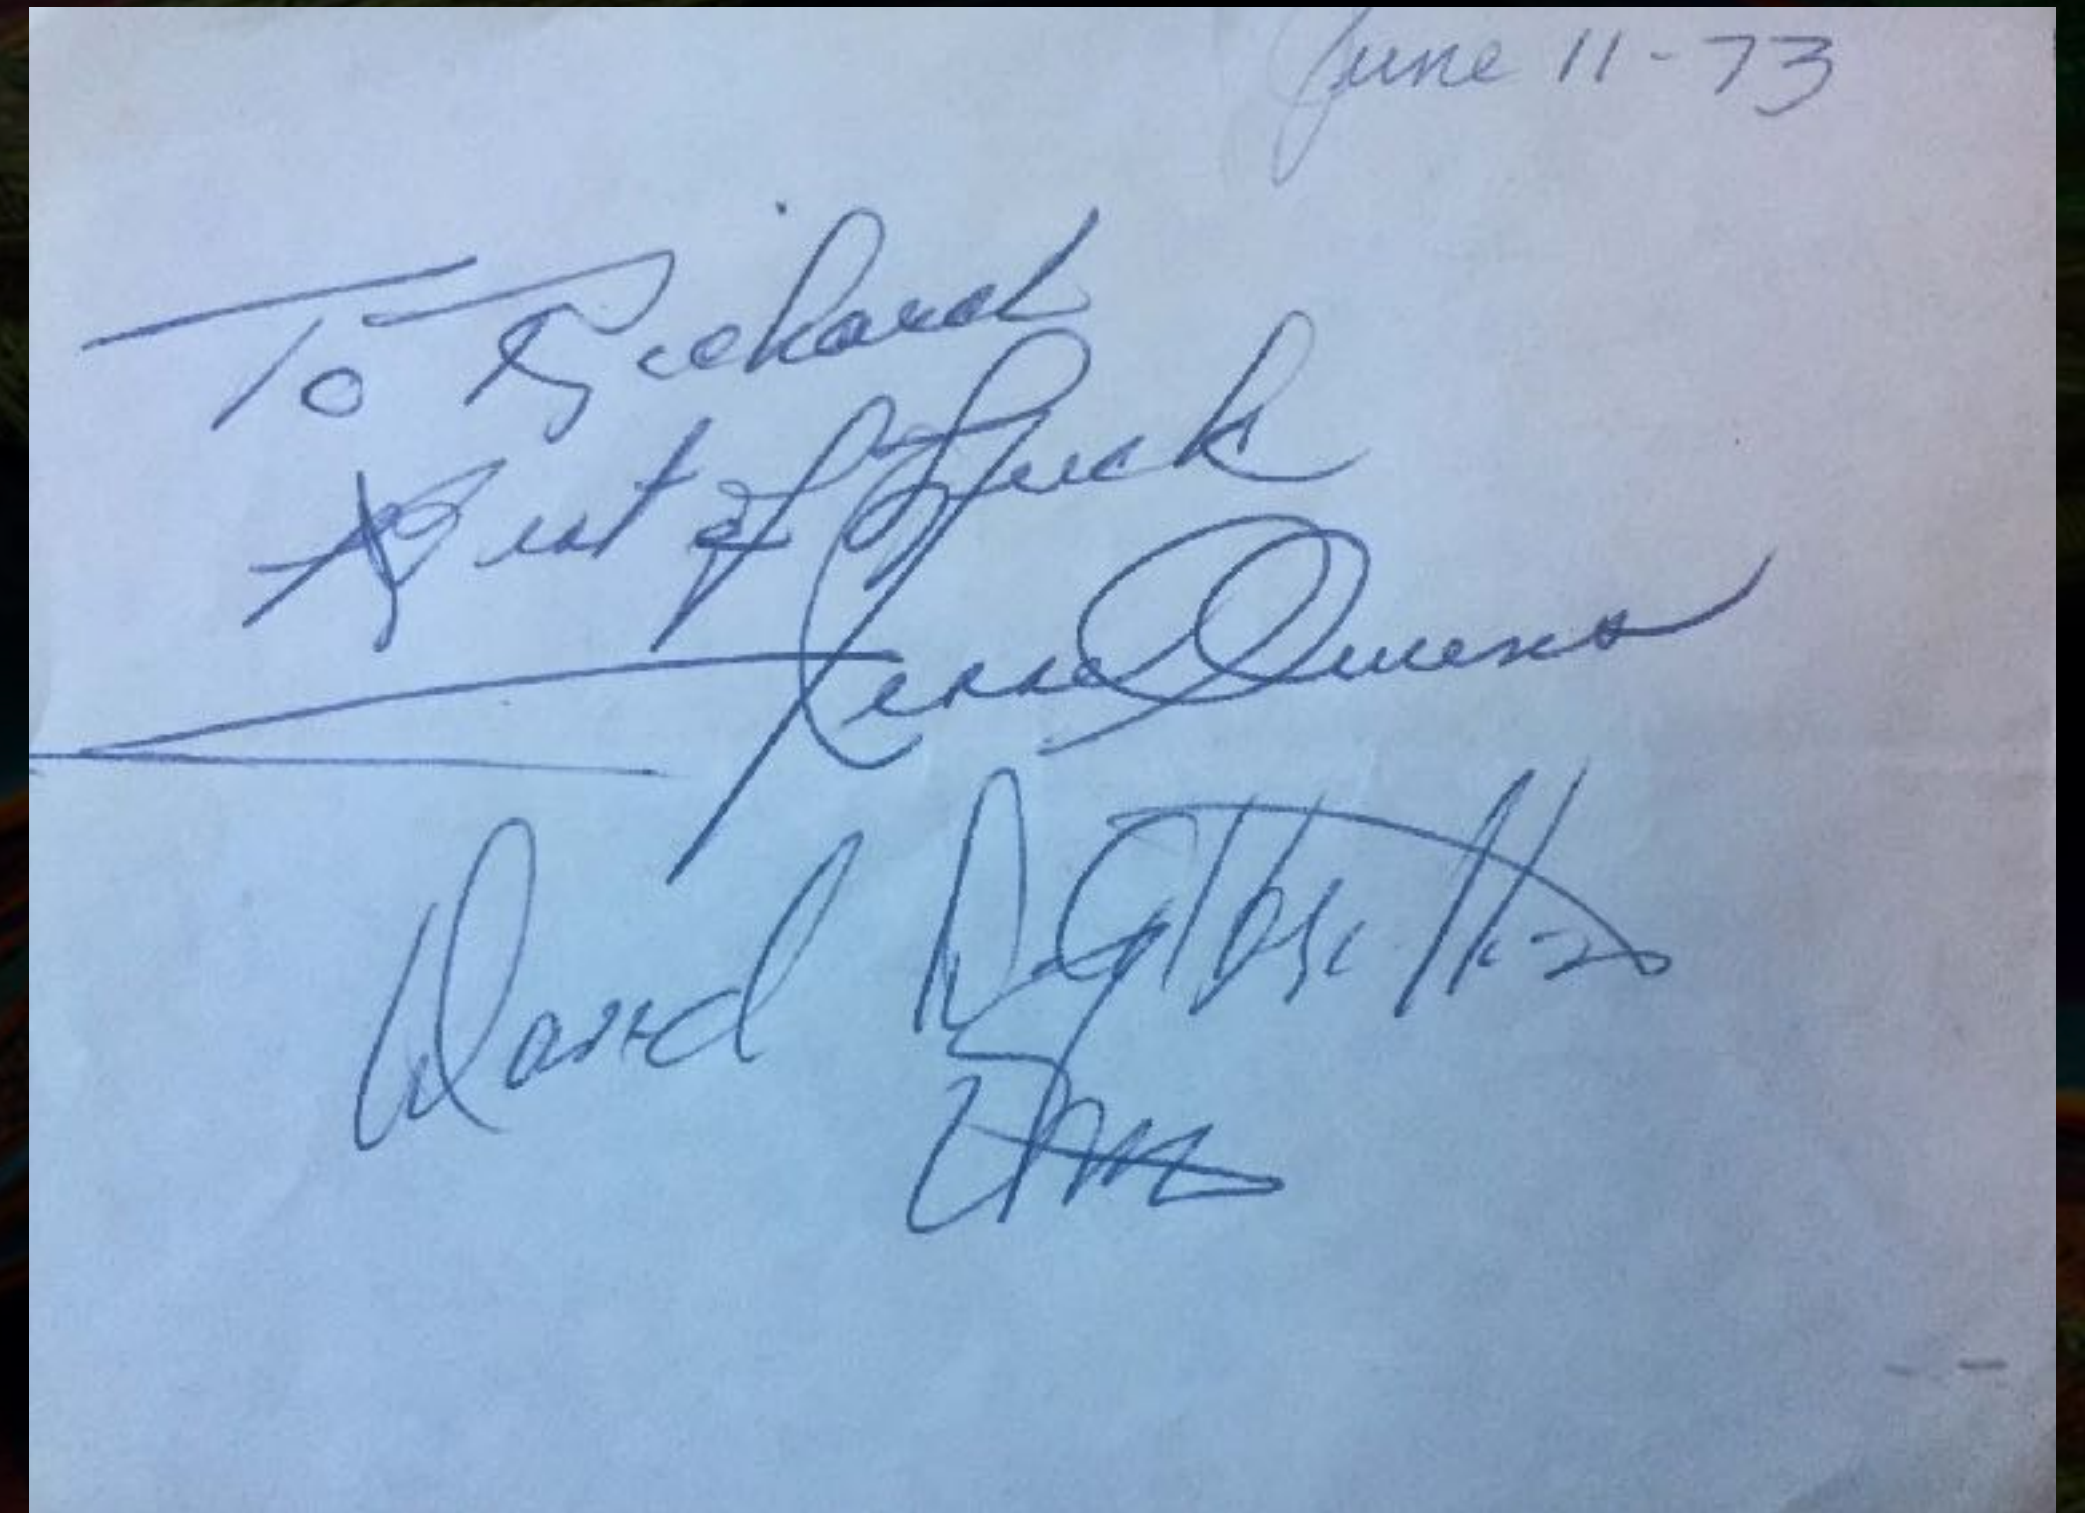 June 11-73
To Richard
Best of Luck
Jesse Owens
David